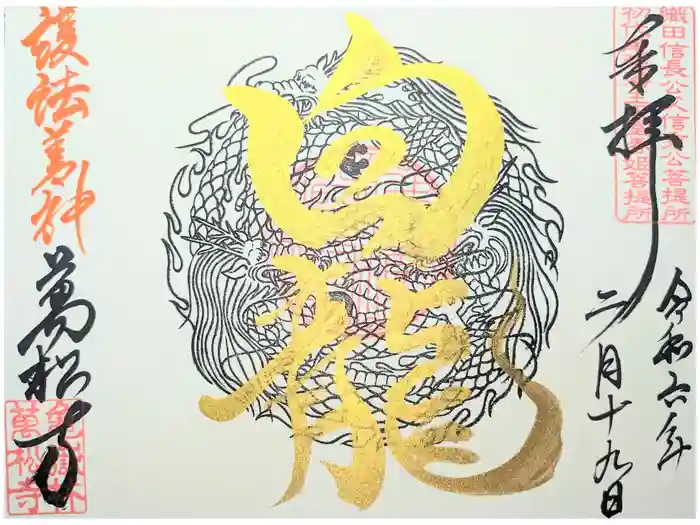 奉拝
織田信長公父信秀公菩提所
令和六年
二月十九日
白龍
護法善神
萬松寺
龜嶽林
萬松寺